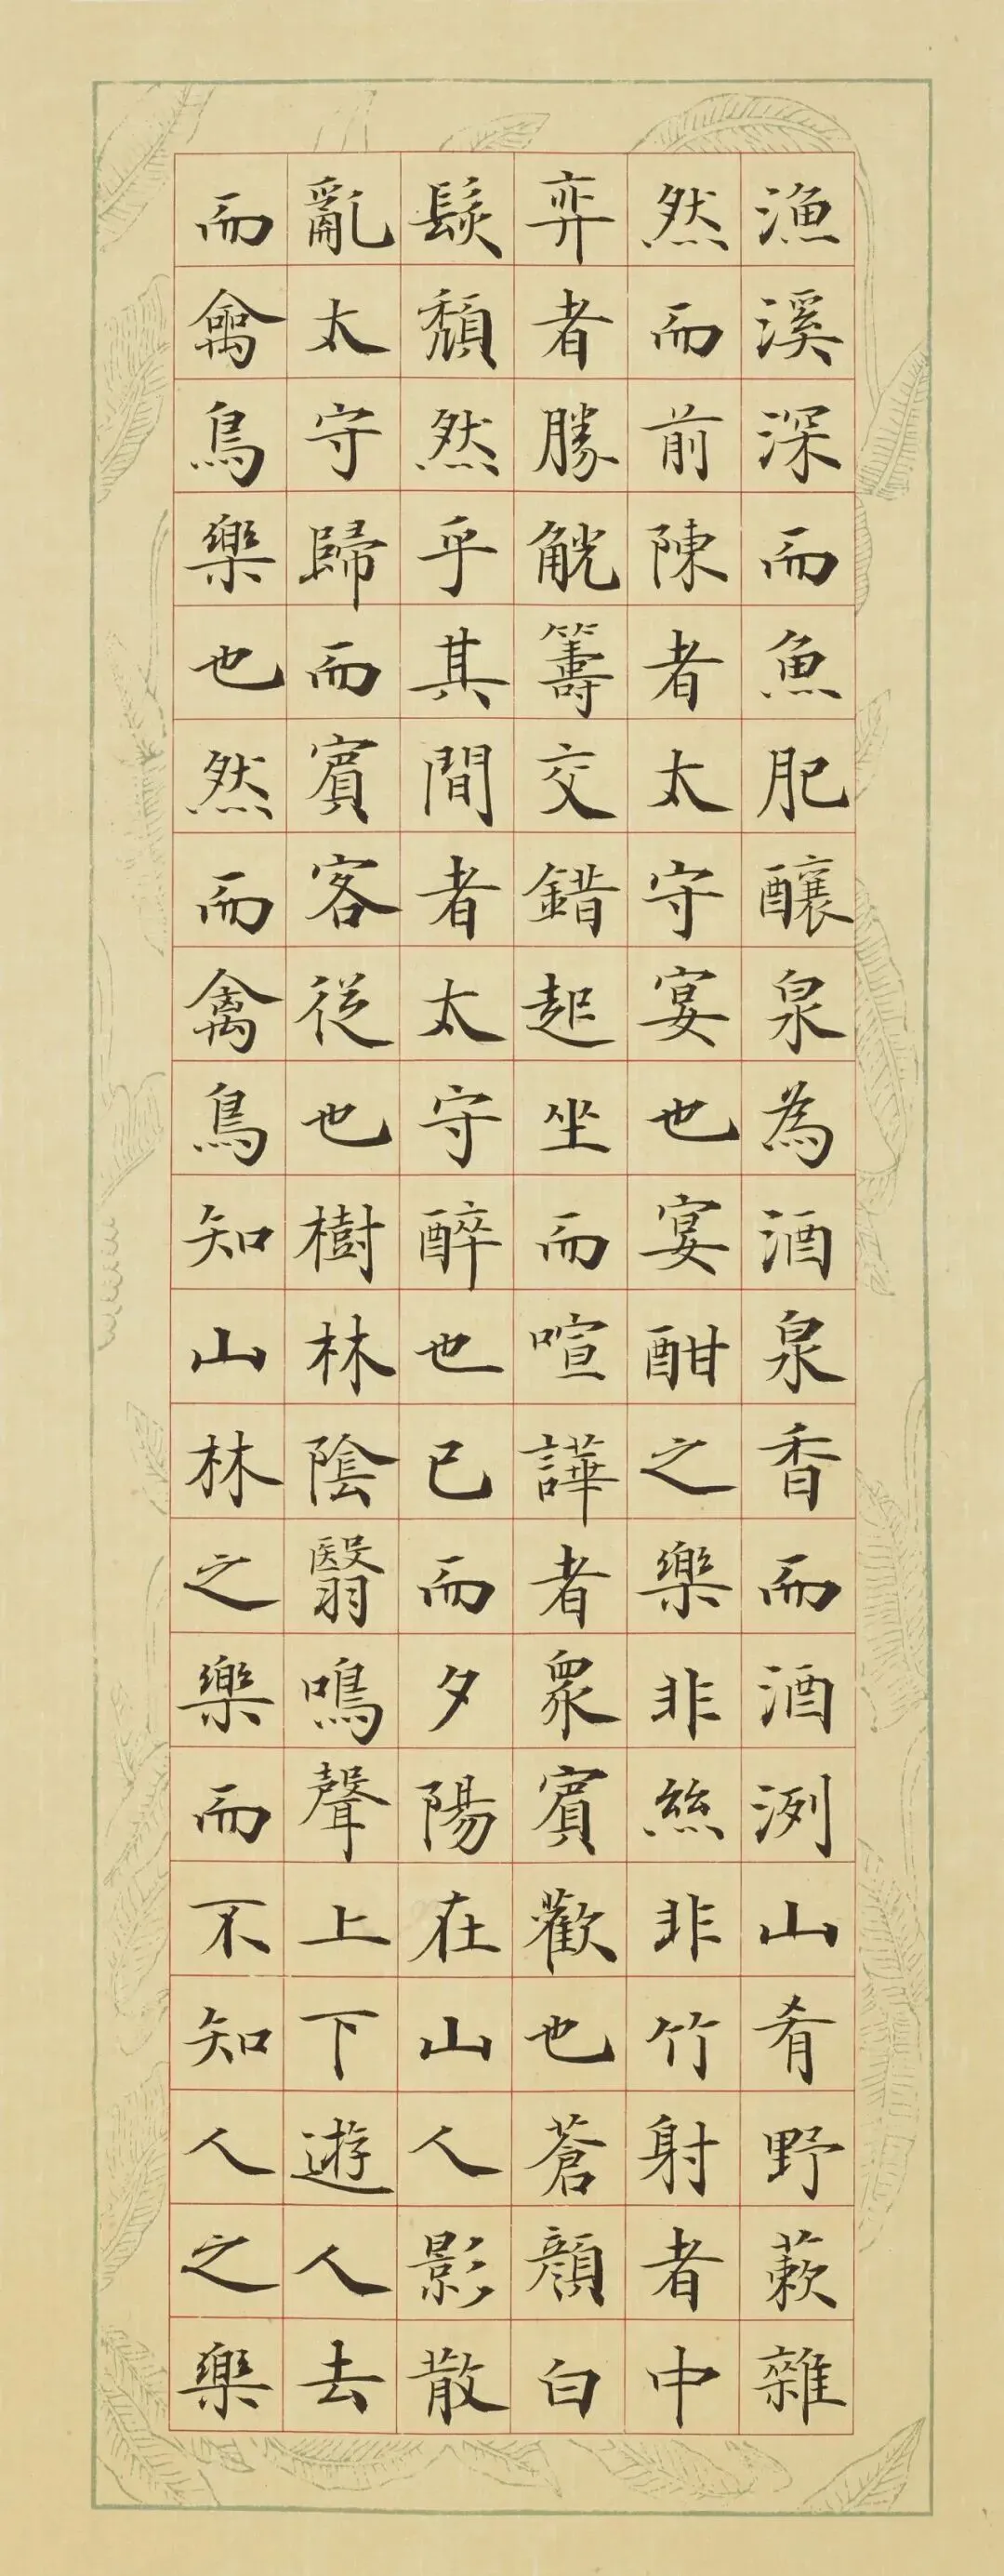 漁溪深而魚肥釀泉為酒泉香而酒洌山肴野蔌雜
然而前陳者太守宴也宴酣之樂非絲非竹射者中
弈者勝觥籌交錯起坐而喧譁者眾賓歡也蒼顏白
髮頹然乎其間者太守醉也已而夕陽在山人影散
亂太守歸而賓客從也樹林陰翳鳴聲上下遊人去
而禽鳥樂也然而禽鳥知山林之樂而不知人之樂